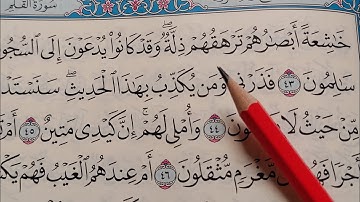 سُورَةُ القَلَمِ
خَٰشِعَةً أَبْصَٰرُهُمْ تَرْهَقُهُمْ ذِلَّةٌ ۖ وَقَدْ كَانُوا۟ يُدْعَوْنَ إِلَى السُّجُو
سَٰلِمُونَ ٤٣ فَذَرْنِى وَمَن يُكَذِّبُ بِهَٰذَا الْحَدِيثِ ۖ سَنَسْتَد
مِّنْ حَيْثُ لَا ونَ ٤٤ وَأُمْلِى لَهُمْ ۚ إِنَّ كَيْدِى مَتِينٌ ٤٥ أَمْ
مَّغْرَمٍ مُّثْقَلُونَ ٤٦ أَمْ عِندَهُمُ الْغَيْبُ فَهُمْ يَكْ